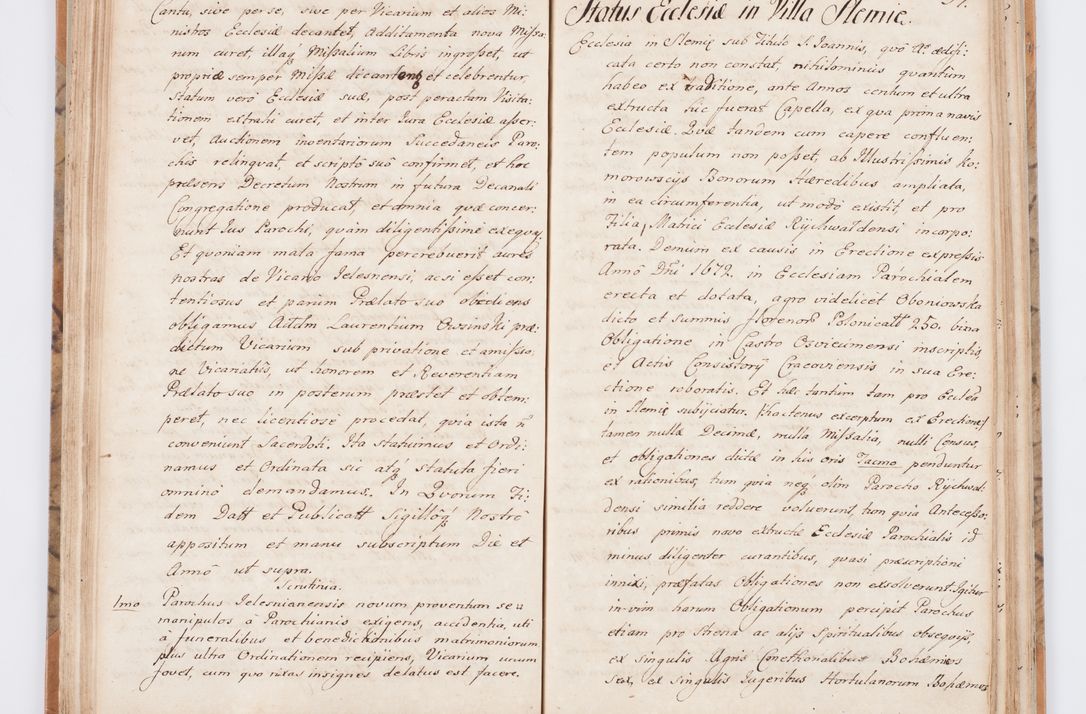 Cantu, sive per se, sive per Vicarium et alios Mi-
nistros Ecclesiæ decantet, Additamenta nova Missa-
rum curet, illaq́ Missalium Libris ingrosset, ut
propriæ semper Missæ dicantur et celebrentur,
Statum verò Ecclesiæ suæ, post peractam Visita-
tionem extrahi curet, et inter Jura Ecclesiæ asser-
vet, Auctionem inventariorum Succedaneis Paro-
chis relinqvat et scriptô suô confirmet, et hoc
præsens Decretum Nostrum in futura Decanali
Congregatione producat, et omnia quæ concer-
nunt Jus Parochi, quàm diligentissimè exequat.
Et quoniam mala fama percrebuerit aures
nostras de Vicario Jelesnensi, ac si esset con-
tentiosus et parum Prælato suo obediens
obligamus Attdm Laurentium Owsinski præ-
dictum Vicarium sub privatione et amissio-
ne Vicariatûs, ut honorem et Reverentiam
Prælato suo in posterum præstet et obtem-
peret, nec licentiosè procedat, quia ista ñ
conveniunt Sacerdoti. Ita statuimus et Ordi-
namus et Ordinata sic atq́ statuta fieri
omninò demandamus. In Qvorum Fi-
dem Datt et Publicatt Sigillôq́ Nostrô
appositum et manu subscriptum Die et
Annô ut supra.
Scrutinia.
1mo Parochus Jelesnianensis novum proventum seu
manipulos à Parochianis exigens, accidentia, uti
a funeralibus et benedictionibus matrimoniorum
plus ultra Ordinationem recipiens, Vicarium unum
fovet, cum quo rixas insignes delatus est facere.
Status Ecclesiæ in Villa Slemie.
Ecclesia in Slemię sub Titulo S. Joannis, quô Aõ ædifi-
cata certo non constat, nihilominus quantum
habeo ex traditione, ante Annos centum et ultra
extructa hic fuerat Capella, ex qva prima navis
Ecclesiæ. Qvæ tandem cum capere confluen-
tem populum non posset, ab Illustrissimis Ko-
morowscijs Bonorum Hæredibus ampliata,
in ea circumferentia, ut modò existit, et pro
Filia, Matrici Ecclesiæ Rychwaldensi incorpo-
rata. Demum ex causis in Erectione expressis
Annô Dñi 1672. in Ecclesiam Parochialem
erecta et dotata, agro videlicèt Oboniowska
dicto et summis florenorũ Polonicalt 250. bina
Obligatione in Castro Osviecimensi inscriptis
et Actis Consistorij Cracoviensis in sua Ere-
ctione roboratis. Et hæc tantum tam pro Ecclea
in Slemię subijciatur. Hactenus excerptum ex Erectione/
tamen nullæ Decimæ, nulla Missalia, nulli Census,
et obligationes dictæ in his oris Tacmo penduntur
ex rationibus, tum quia neq́ olim Parocho Rychwal-
densi similia reddere voluerunt, tum quia Antecesso-
ribus primis novo extructæ Ecclesiæ Parochialis id
minus diligenter curantibus, quasi præscriptioni
innixi, præfatas Obligationes non exsolverunt. Igitur
in vim harum Obligationum percipit Parochus
etiam pro Strena ac alijs Spiritualibus obseqvijs,
ex singulis Agris Cmethonalibus Bohæmicos
sex, ex singulis Jugeribus Hortulanorum Bohæmos